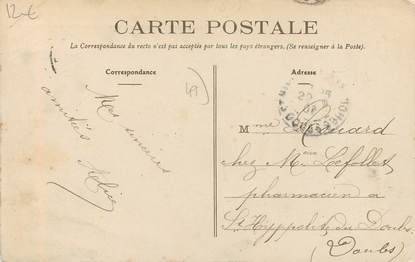 12€
CARTE POSTALE
La Correspondance du recto n'est pas acceptée par tous les pays étrangers. (Se renseigner à la Poste).
Correspondance
Adresse
Mes sincères
amitiés
Alice
Mme
chez Mme Lefollet
pharmacien à
St Hyppolite du Doubs
(Doubs)